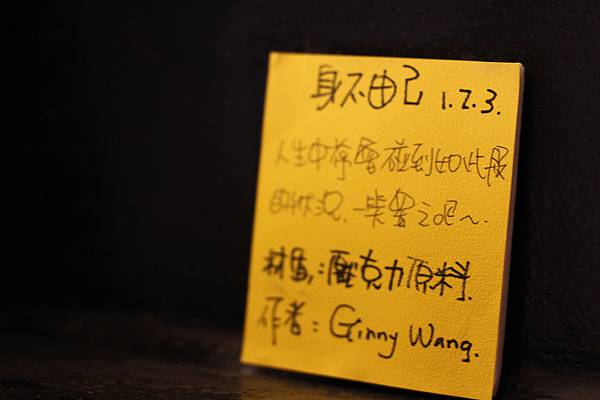 身不由己 1.2.3.
人生中常會碰到如此般
的狀況、一笑置之吧～
材質：壓克力原料.
作者：Ginny Wang.